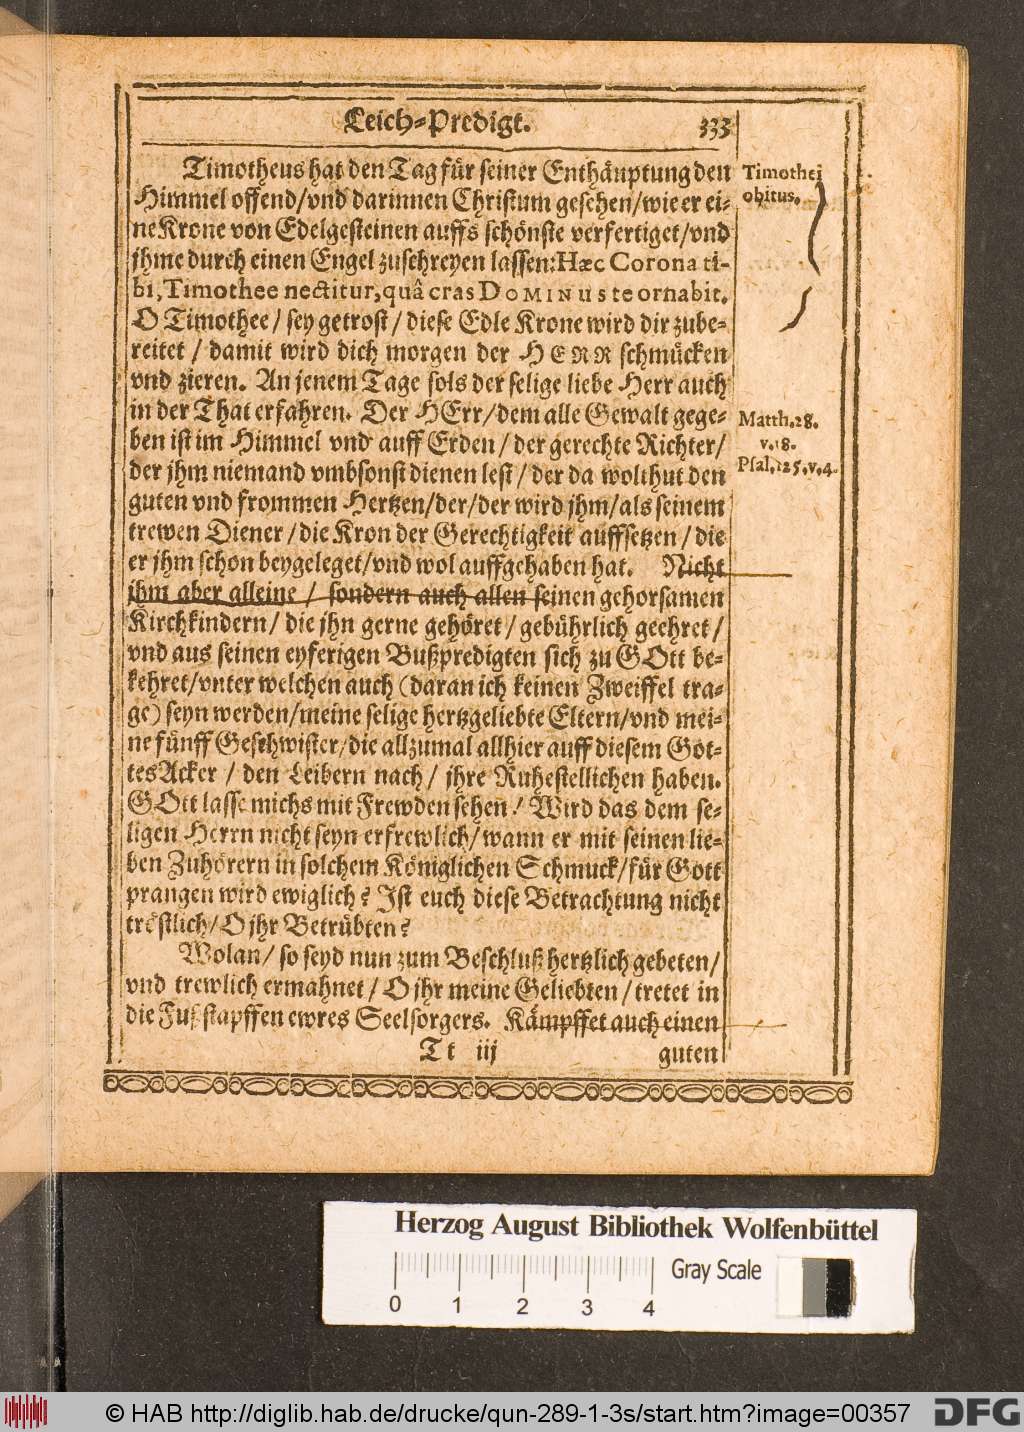 Leich-Predigt. 333
Timotheus hat den Tag für seiner Enthäuptung den
Himmel offend/vnd darinnen Christum gesehen/wie er ei-
ne Krone von Edelgesteinen auffs schönste verfertiget/vnd
jhme durch einen Engel zuschreyen lassen: Hæc Corona ti-
bi, Timothee nectitur, quâ cras DOMINUS te ornabit.
O Timothee/ sey getrost/ diese Edle Krone wird dir zube-
reitet / damit wird dich morgen der HERR schmücken
vnd zieren. An jenem Tage sols der selige liebe Herr auch
in der That erfahren. Der HErr/dem alle Gewalt gege-
ben ist im Himmel vnd auff Erden/ der gerechte Richter/
der jhm niemand vmbsonst dienen lest/ der da wolthut den
guten vnd frommen Hertzen/der/der wird jhm/als seinem
trewen Diener/die Kron der Gerechtigkeit auffsetzen/ die
er jhm schon beygeleget/vnd wol auffgehaben hat. Nicht
jhm aber alleine / sondern auch allen seinen gehorsamen
Kirchkindern/ die jhn gerne gehöret/ gebührlich geehret/
vnd aus seinen eyferigen Bußpredigten sich zu GOtt be-
kehret/vnter welchen auch (daran ich keinen Zweiffel tra-
ge) seyn werden/meine selige hertzgeliebte Eltern/vnd mei-
ne fünff Geschwister/die allzumal allhier auff diesem Got-
tes Acker / den Leibern nach/ jhre Ruhestellichen haben.
GOtt lasse michs mit Frewden sehen! Wird das dem se-
ligen Herrn nicht seyn erfrewlich/wann er mit seinen lie-
ben Zuhörern in solchem Königlichen Schmuck/für Gott
prangen wird ewiglich? Ist euch diese Betrachtung nicht
tröstlich/O jhr Betrübten?
Wolan/ so seyd nun zum Beschluß hertzlich gebeten/
vnd trewlich ermahnet/ O jhr meine Geliebten/tretet in
die Fußstapffen ewres Seelsorgers. Kämpffet auch einen
Tt iij guten
Timothei
obitus.
Matth.28.
v.18.
Psal.125.v.4.
Herzog August Bibliothek Wolfenbüttel
Gray Scale
0 1 2 3 4
© HAB http://diglib.hab.de/drucke/qun-289-1-3s/start.htm?image=00357
DFG